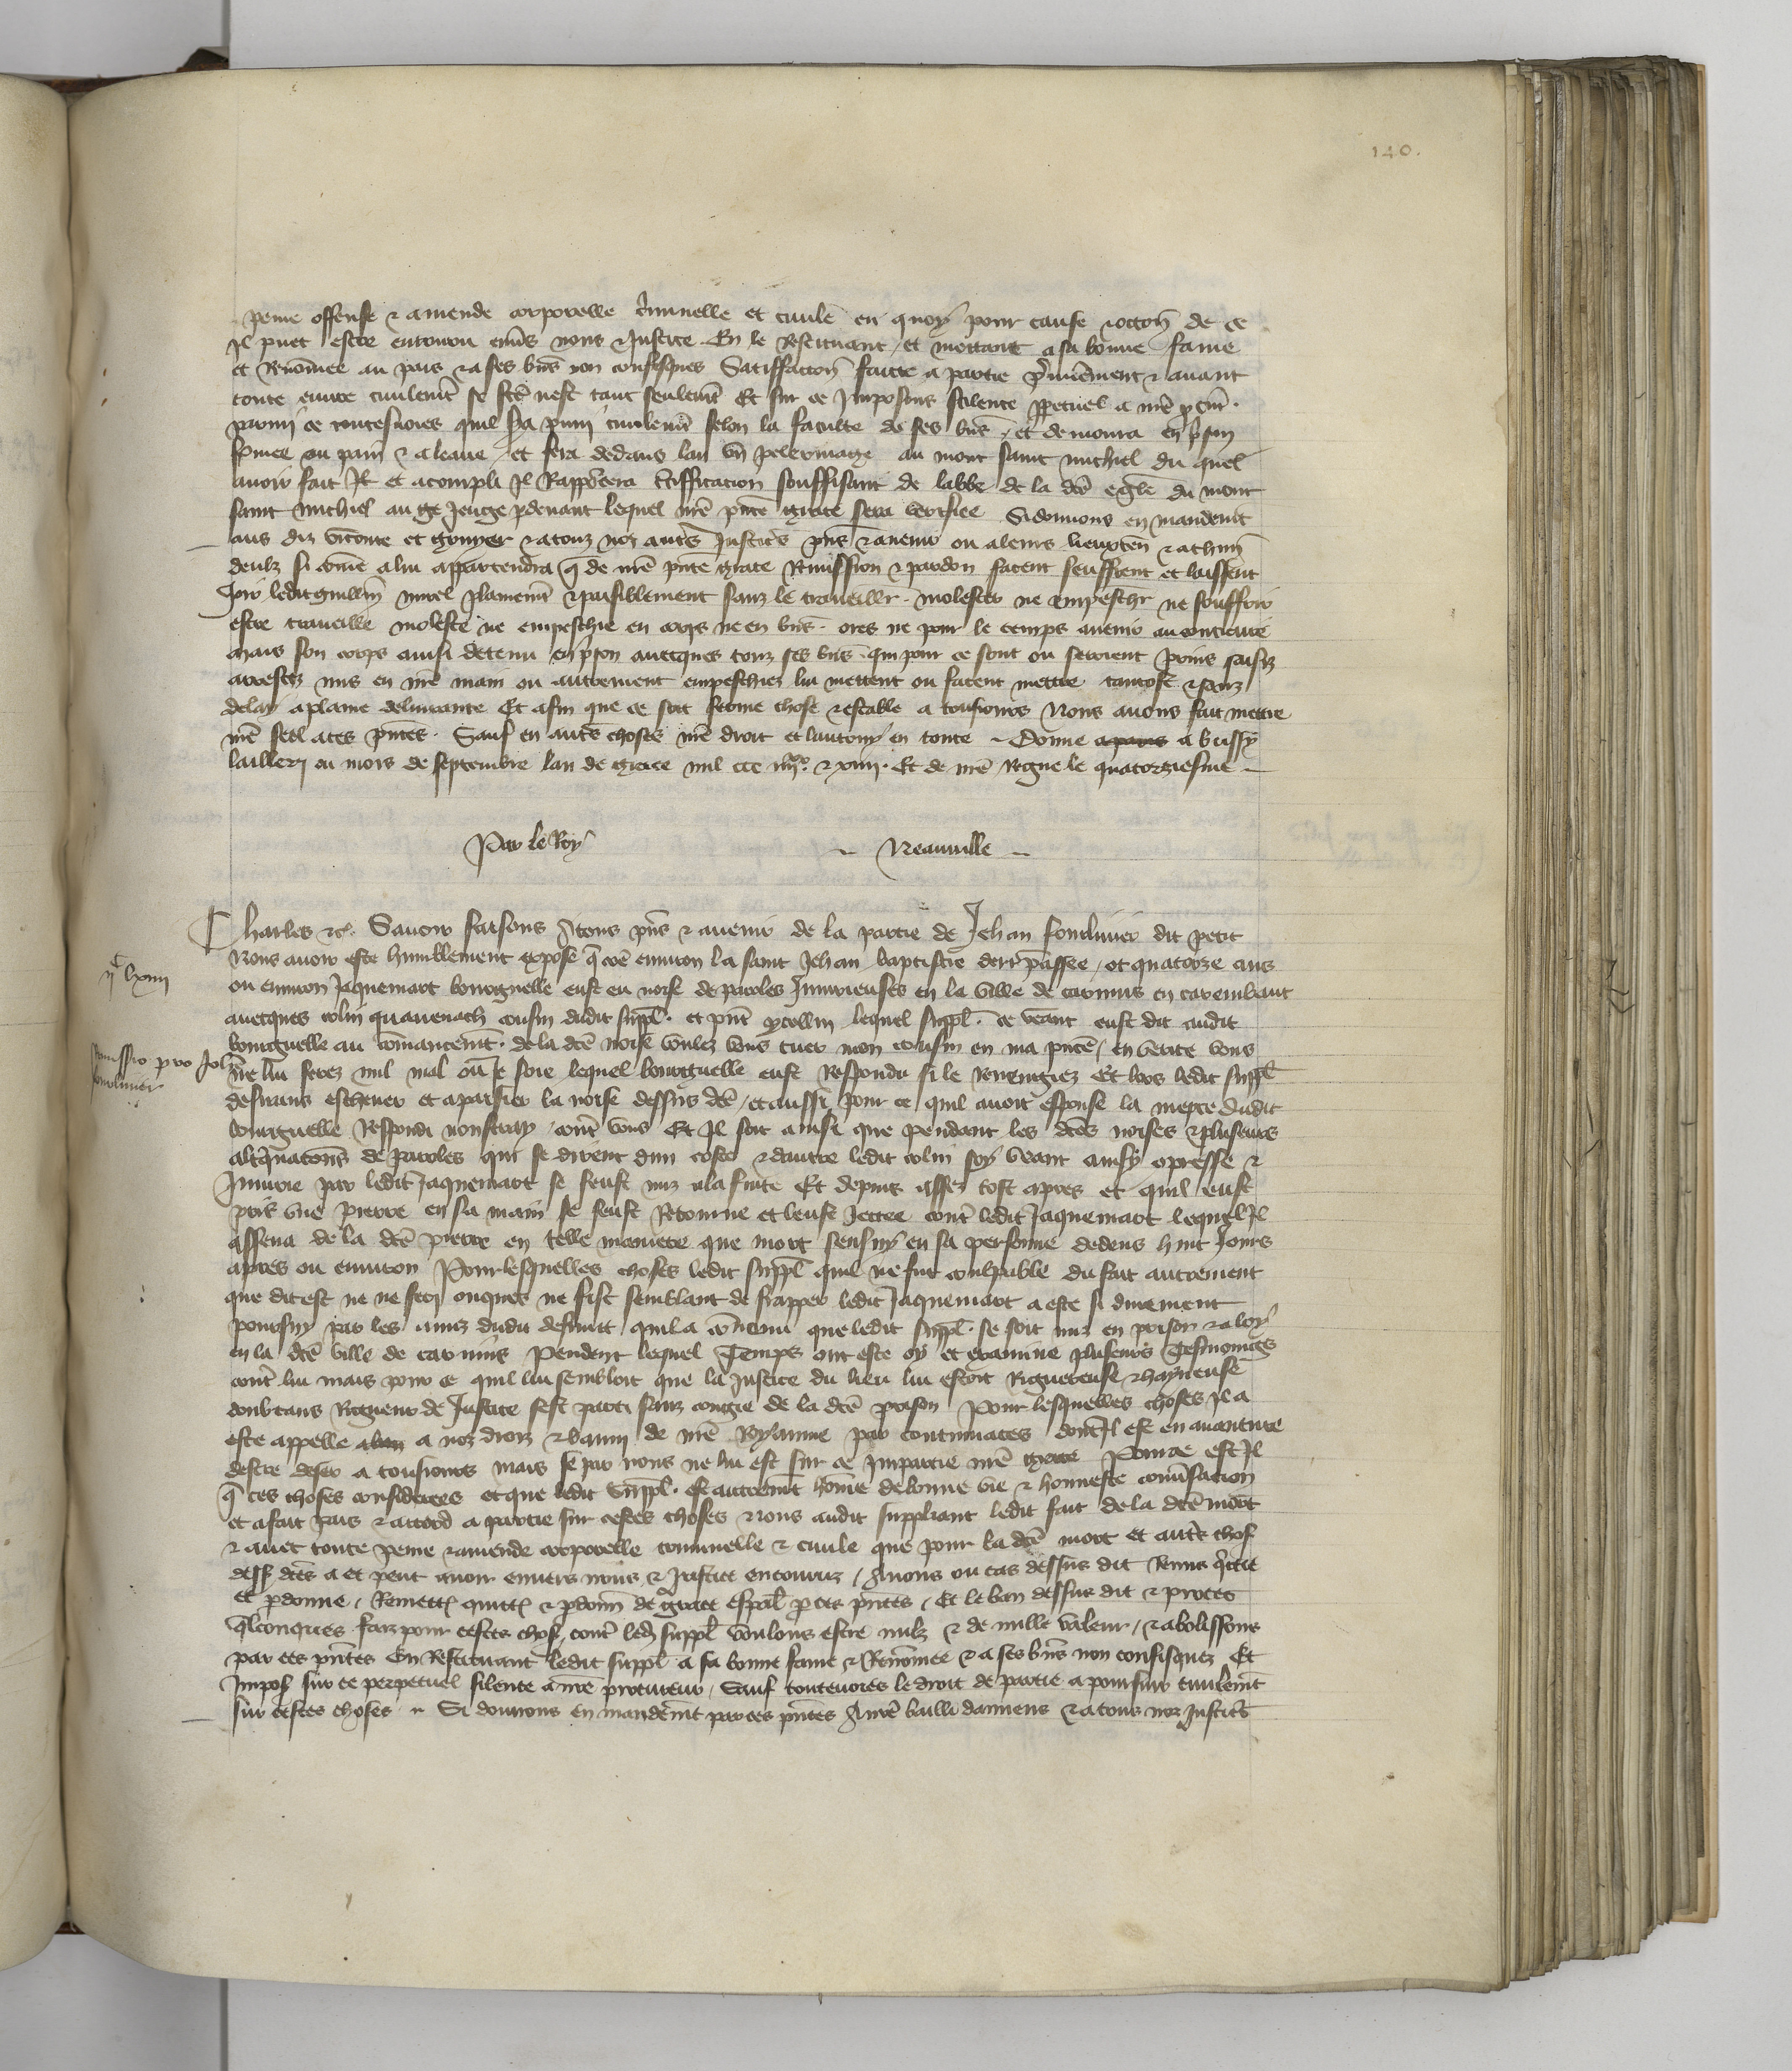 140.
peine offense & amende corporelle criminelle et civile en quoy pour cause & occoñ de ce
Il puet estre encouru envs nous & Justice. En le Restituant / et mettant a sa bonne fame
et Renõmee au pais & a ses bñs non confisques Satisfaccõn faicte a partie p̃mierement & avant
toute euvre civilemt̃ se fcẽ nest tant seulemt̃ Et sur ce Imposons silence ppetuel a nrẽ pcur̃.
parmi ce toutesvoies quil sera puni civilemt̃ selon la faculte de ses bñs / et demoura en pson
fermee au pain & a leaue / et fera dedans lan vñ pelerinage au mont saint michiel du quel
avoir fait et acompli Il Rapportera certifficacion souffisant de labbe de la dcẽ eglẽ du mont
saint michiel au Juge pdevant lequel nrẽ pñte grace sera verifiee Si donnons en mandemt̃
aus diz viconte et gruyer & a touz noz autr̃s Justiciers pñs & avenir ou a leurs lieuxten̄ & a chūn
deulz si cõme a lui appartendra q̃ de nrẽ pñte grace Remission & pardon facent seuffrent et laissent
Joir ledit guillm̄ plainemt̃ & paisiblement sanz le traveillier molester ne empeschr̃ ne souffrir
estre traveillie moleste ne empeschie en corps ne en bñs. ores ne pour le temps avenir au contraire
mais son corps ainsi detenu en pson avecques touz ses bñs qui pour ce sont ou seroient prins saisiz
arrestez mis en nrẽ main ou autrement empeschiez lui mettent ou facent mettre tantost & sanz
delay a plaine delivrance Et afin que ce soit ferme chose & estable a tousiours Nous avons fait mettre
nrẽ seel a ces pñtes. Sauf en autr̃s choses nrẽ droit et lautruy en toute Donne a paris a bussy
laillery ou mois de septembre lan de grace mil ccc iiijxx. & xiiij. Et de nrẽ Regne le quatorziesme
Par le Roy Neauville
ijc lxiiij
Remissio pro Joh̃e
fonduner
Charles &c̃. Savoir faisons A tous pñs & avenir de la partie de Jehan dit petit
Nous avoir este humblement expose q̃ cõe environ la saint Jehan baptistre derr̃ passee / ot quatorze ans
ou environ Jaquemart bourguelle eust eu noise de paroles Iniurieuses en la ville de carnins en carembaut
avecques colin quavenach cousin dudit suppl̃. et pñt ycellui lequel suppl̃. ce veant eust dit audit
bourguelle au cõmancemt̃. de la dcẽ noise voulez vous tuer mon cousin en ma pñce / en verite vous
ne lui ferez nul mal ou Je soie lequel bourguelle eust Respondu si le Revengiez Et lors ledit suppl̃
desirans eschever et apaisier la noise dessus dcẽ / et aussi pour ce quil avoit espouse la mere dudit
bourguelle Respondi non feray contr̃ vous Et Il soit ainsi que pendant les dcẽs noises & pluseurs
altercacons de paroles qui se dirent dun coste & dautre ledit colin soy veant ainsy opresse &
Iniurie par ledit Jaquemart se feust mis a la fuite Et depuis assez tost apres et quil eust
pris une pierre en sa main se feust Retourne et leust Jettee contr̃ ledit Jaquemart lequel Il
assena de la dcẽ pierre en telle maniere que mort sensuy en sa personne dedens huit Jours
apres ou environ Pour lesquelles choses ledit suppl̃ quil ne fut coulpable du fait autrement
que dit est ne ne feri onques ne fist semblant de frapper ledit Jaquemart a este si durement
poursuy par les amis dudit defunct quil a cõvenu que ledit suppl̃. se soit mis en prison & a loy
en la dcẽ ville de carnins Pendent lequel Temps ont este oy et examine pluseurs Tesmoings
contr̃ lui mais pour ce quil lui sembloit que la Justice du lieu lui estoit Riguereuse & hayneuse
doubtans Rigueur de Justice sest parti sanz congie de la dcẽ prison Pour lesquelles choses Il a
este appelle a noz droiz & banni de nrẽ Royaume par contumaces dont Il est en aventure
destre desert a tousiours mais se par nous ne lui est sur ce Impartie nrẽ grace Pour ce est Il
q̃ ces choses considerees et que ledit suppl̃. est autremt̃ hõme de bonne vie & honneste conv̄sacion
et a fait paix & accord a partie sur cestes choses Nous audit suppliant ledit fait de la dcẽ mort
& avec toute peine & amende corporelle criminelle & civile que pour la dcẽ mort et autr̃s chos̃
dess̃ dcẽs a et peut avoir envers nous & Justice encouruz / Avons ou cas dessus dit Remis q̃ctie
et pdonne / Remett̃ quitt̃ & pdonn̄ de grace espal̃ p ces pñtes / Et le ban dessus dit & proces
q̃lconques faiz pour cestes chos̃ contr̃ led̃ suppl̃ voulons estre nulz & de nulle valeur / & abolissons
par ces pñtes En Restituant ledit suppl̃ a sa bonne fame & Renõmee & a ses bñs non confisquez Et
Impos̃ sur ce perpetuel silence a nrẽ procureur / Sauf toutevoies le droit de partie a poursuir civilemt̃
sur cestes choses Si donnons en mandemt̃ par ces pñtes A nrẽ bailli damiens & a tous noz Justic̃rs